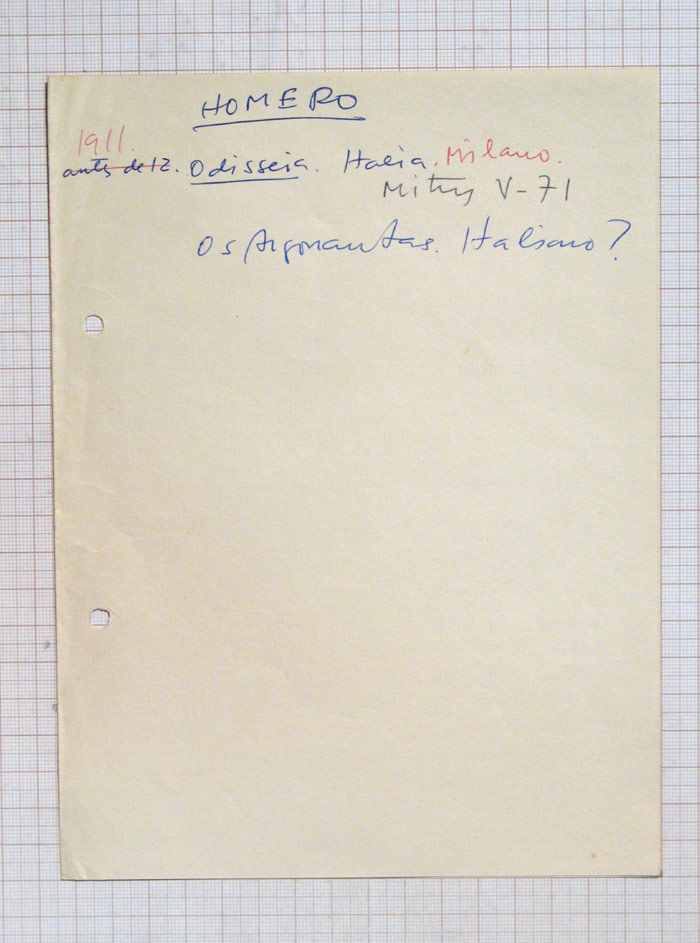 HOMERO
1911.
antes de 12. Odisseia. Italia. Milano.
Mitry V-71
Os Argonautas. Italiano?